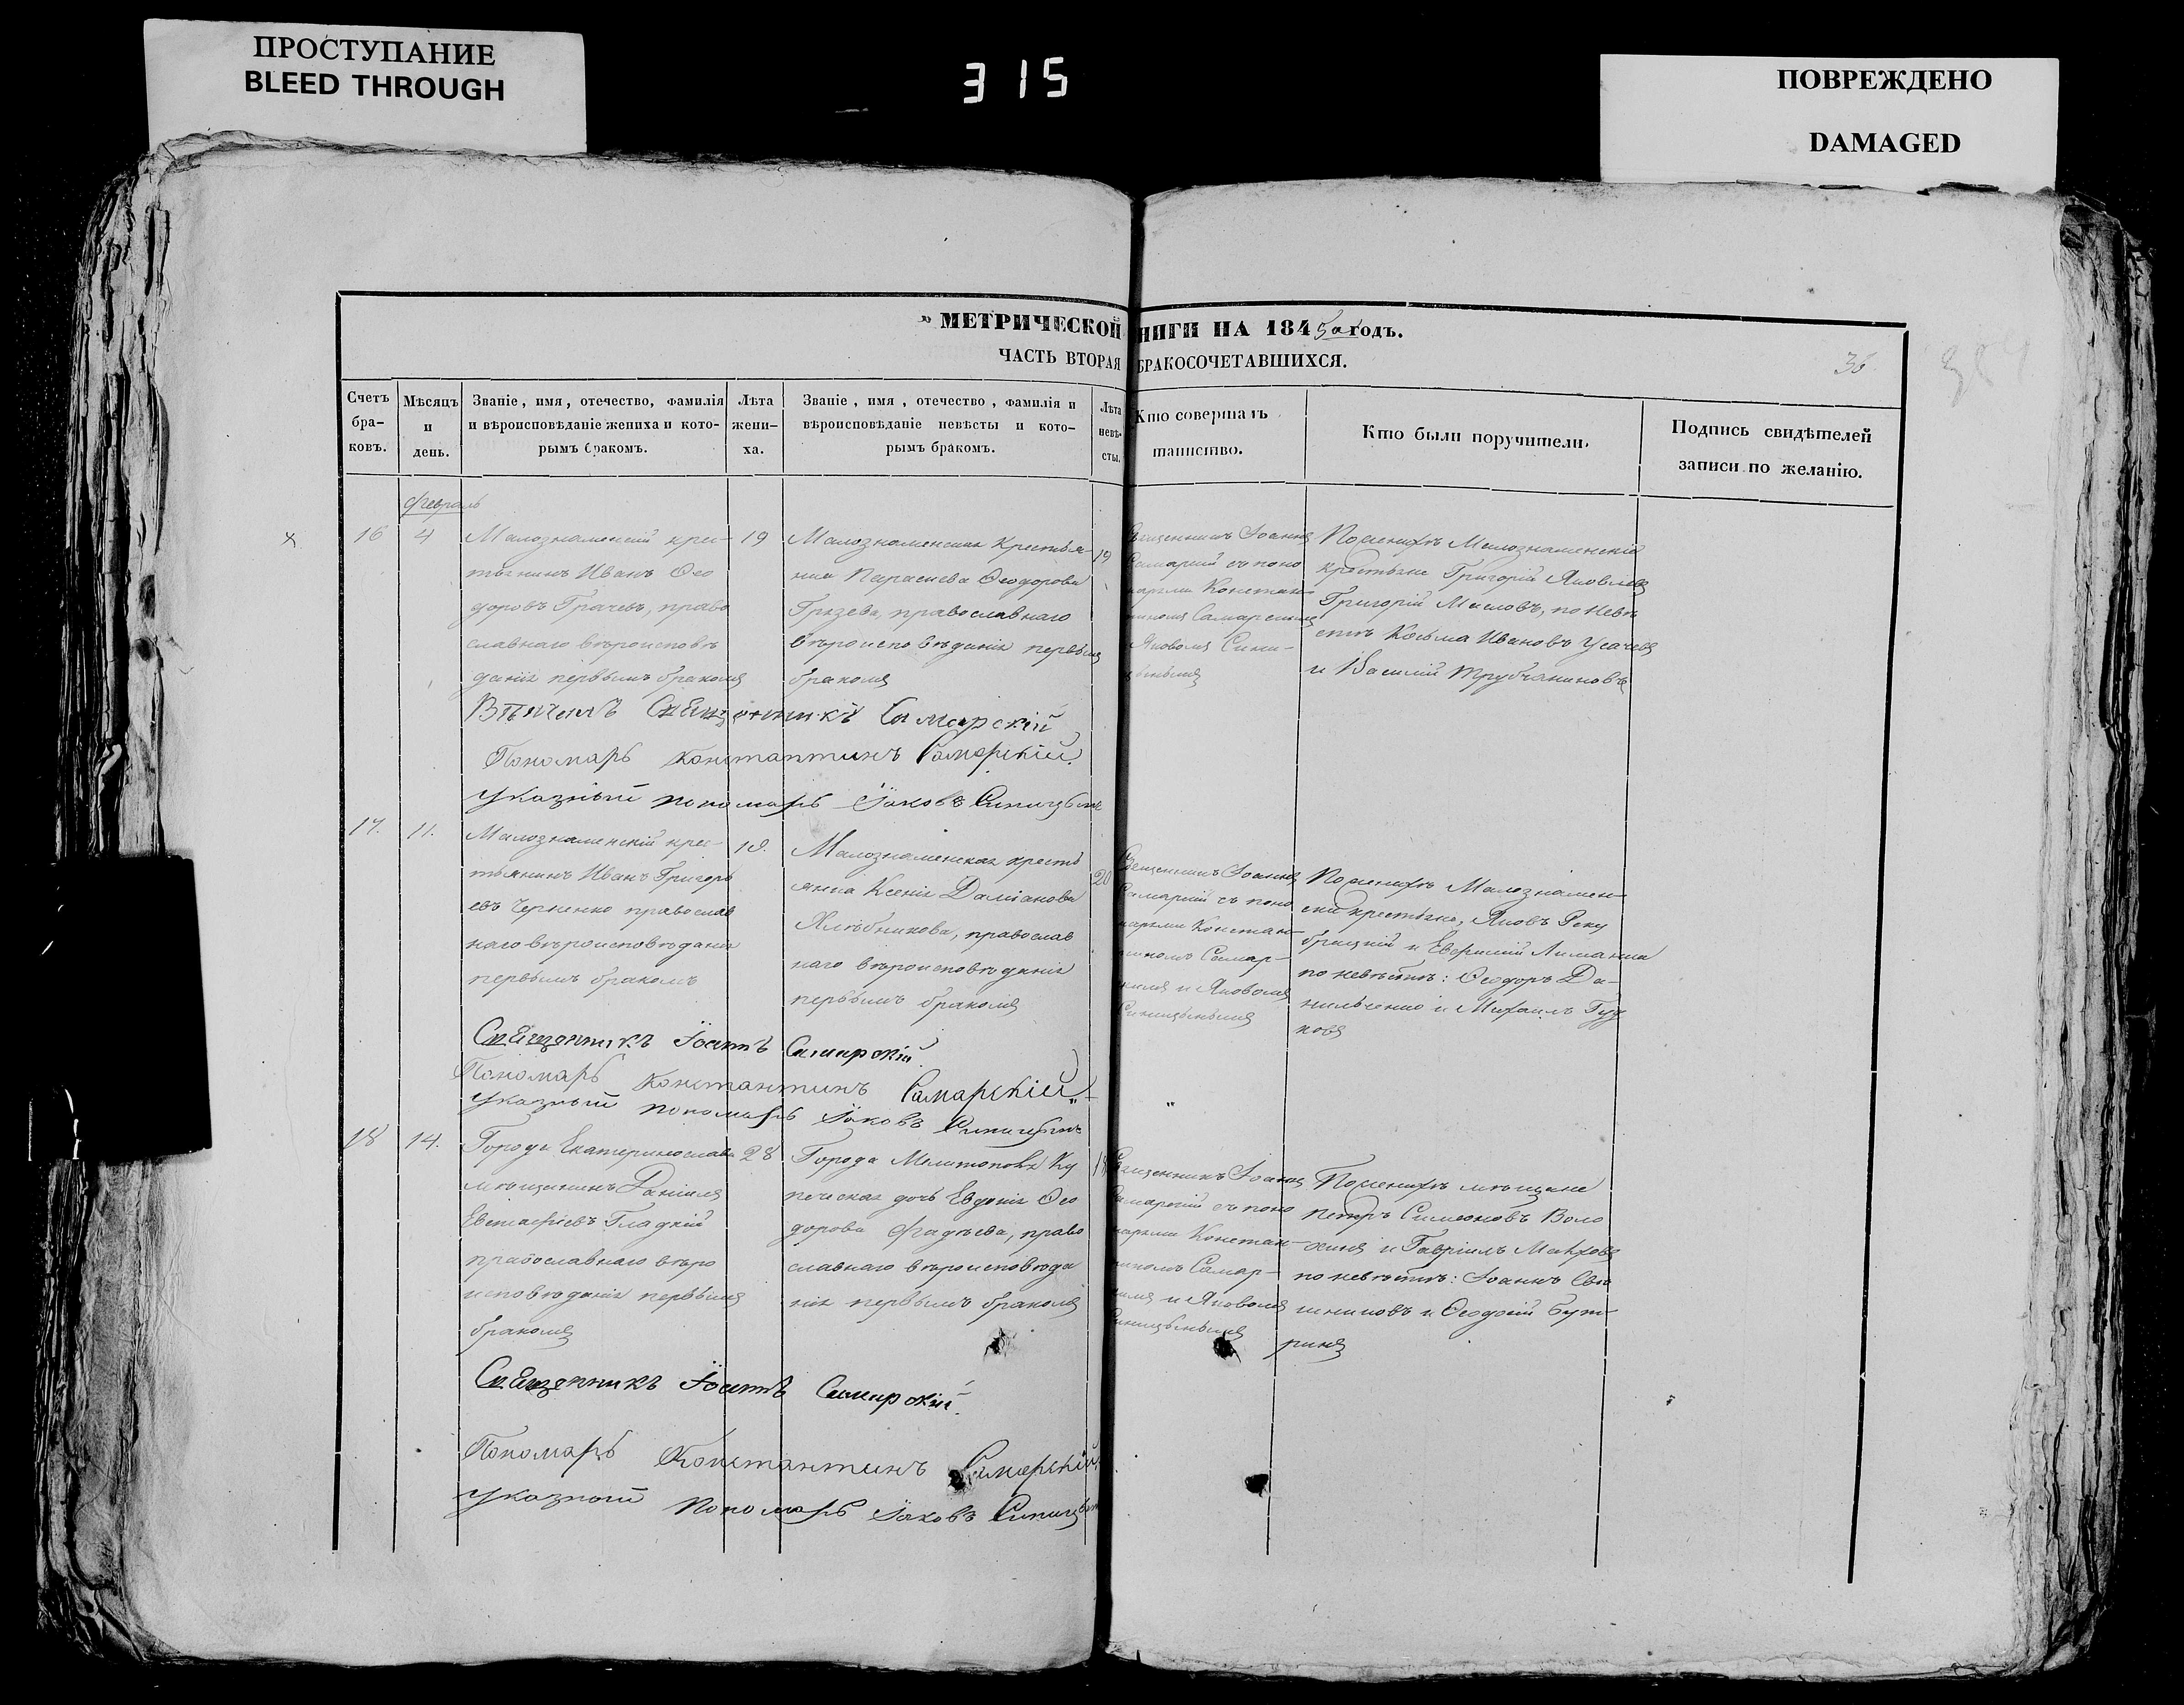 ПРОСТУПАНИЕ
BLEED THROUGH
315
ПОВРЕЖДЕНО
DAMAGED
МЕТРИЧЕСКОЙ
НИГИ НА 1845 годъ.
ЧАСТЬ ВТОРАЯ
БРАКОСОЧЕТАВШИХСЯ.
36
Счетъ
бра-
ковъ.
Мѣсяцъ
и
день.
Званіе, имя, отечество, фамилія
и вѣроисповѣданіе жениха и кото-
рымъ бракомъ.
Лѣта
жени-
ха.
Званіе, имя, отечество, фамилія и
вѣроисповѣданіе невѣсты и кото-
рымъ бракомъ.
Лѣта
невѣ-
сты.
Кто совершалъ
таинство.
Кто были поручители.
Подпись свидѣтелей
записи по желанію.
Февраль
16
4
Малознаменскій крес-
тьянинъ Иванъ Ѳео
доровъ Грачевъ, право
славнаго вѣроисповѣ
данія первымъ бракомъ
19
Малознаменская Крестья-
нка Параскева Ѳеодорова
Грязева, православнаго
вѣроисповѣданія первымъ
бракомъ
19
Священникъ Іоаннъ
Самарскій съ поно
марями Констан-
тиномъ Самарскимъ
Яковомъ Сини-
цынымъ
По женихѣ Малознаменскіе
крестьяне Григорій Яковлевъ
Григорій Масловъ, по невѣ
стѣ Косьма Ивановъ Усачевъ
и Василій Трубчаниновъ
Вѣнчалъ Священникъ Самарскій
Пономарь Константинъ Самарскій
Указный пономарь Іаковъ Синицынъ
17.
11.
Малознаменскій крес-
тьянинъ Иванъ Григорь
евъ Черненко православ
наго вѣроисповѣданія
первымъ бракомъ
18.
Малознаменская кресть
янка Ксенія Даміанова
Хлѣбникова, православ
наго вѣроисповѣданія
первымъ бракомъ
20
Священникъ Іоаннъ
Самарскій съ поно
марями Констан-
тиномъ Самар-
кимъ и Яковомъ
Синицынымъ
По женихѣ Малознамен-
скіе крестьяне, Яковъ
и Евфимій Лиманка
по невѣстѣ: Ѳеодоръ Да-
нильченко и Михаилъ Гуд
ковъ
Священникъ Іоаннъ Самарскій
Пономарь Константинъ Самарскій
Указный пономарь Іаковъ Синицынъ
18
14.
Города Екатеринослава
мѣщанинъ Даніилъ
Евстафіевъ Гладкій
православнаго вѣро
исповѣданія первымъ
бракомъ
28
Города Мелитополя Ку
печеская дочь Евдокія Ѳео
дорова Фадѣева, право
славнаго вѣроисповѣда
нія первымъ бракомъ
Священникъ Іоаннъ
Самарскій съ поно
марями Констан-
тиномъ Самар-
кимъ и Яковомъ
Синицынымъ
По женихѣ мѣщане
Петръ Симеоновъ Воло
хинъ и Гавріилъ Маховъ
по невѣстѣ: Іоаннъ
и Ѳеодосій Бут-
ринъ
Священникъ Іоаннъ Самарскій
Пономарь Константинъ Самарскій
Указный пономарь Іаковъ Синицынъ